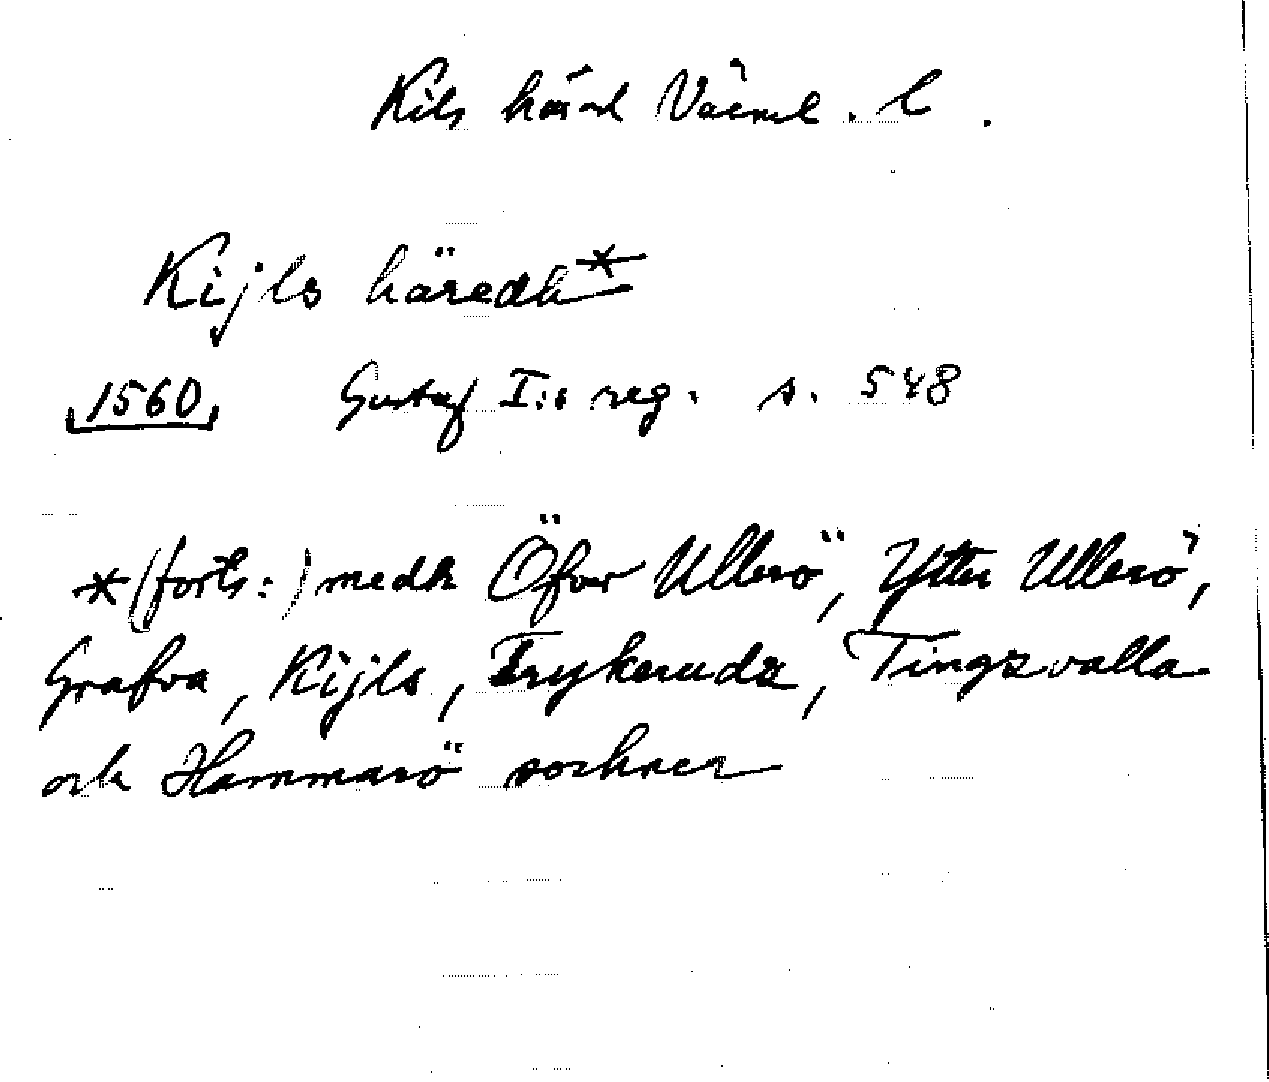 Kils härad Värml. l.
Kijls häredh*
1560 Gustaf I:s reg. s. 548
* (forts:) medh Öfver Ullerö, Ytter Ullerö,
Grafva, Kijls, Frykerudz, Tingzvalla
och Hammarö sochner